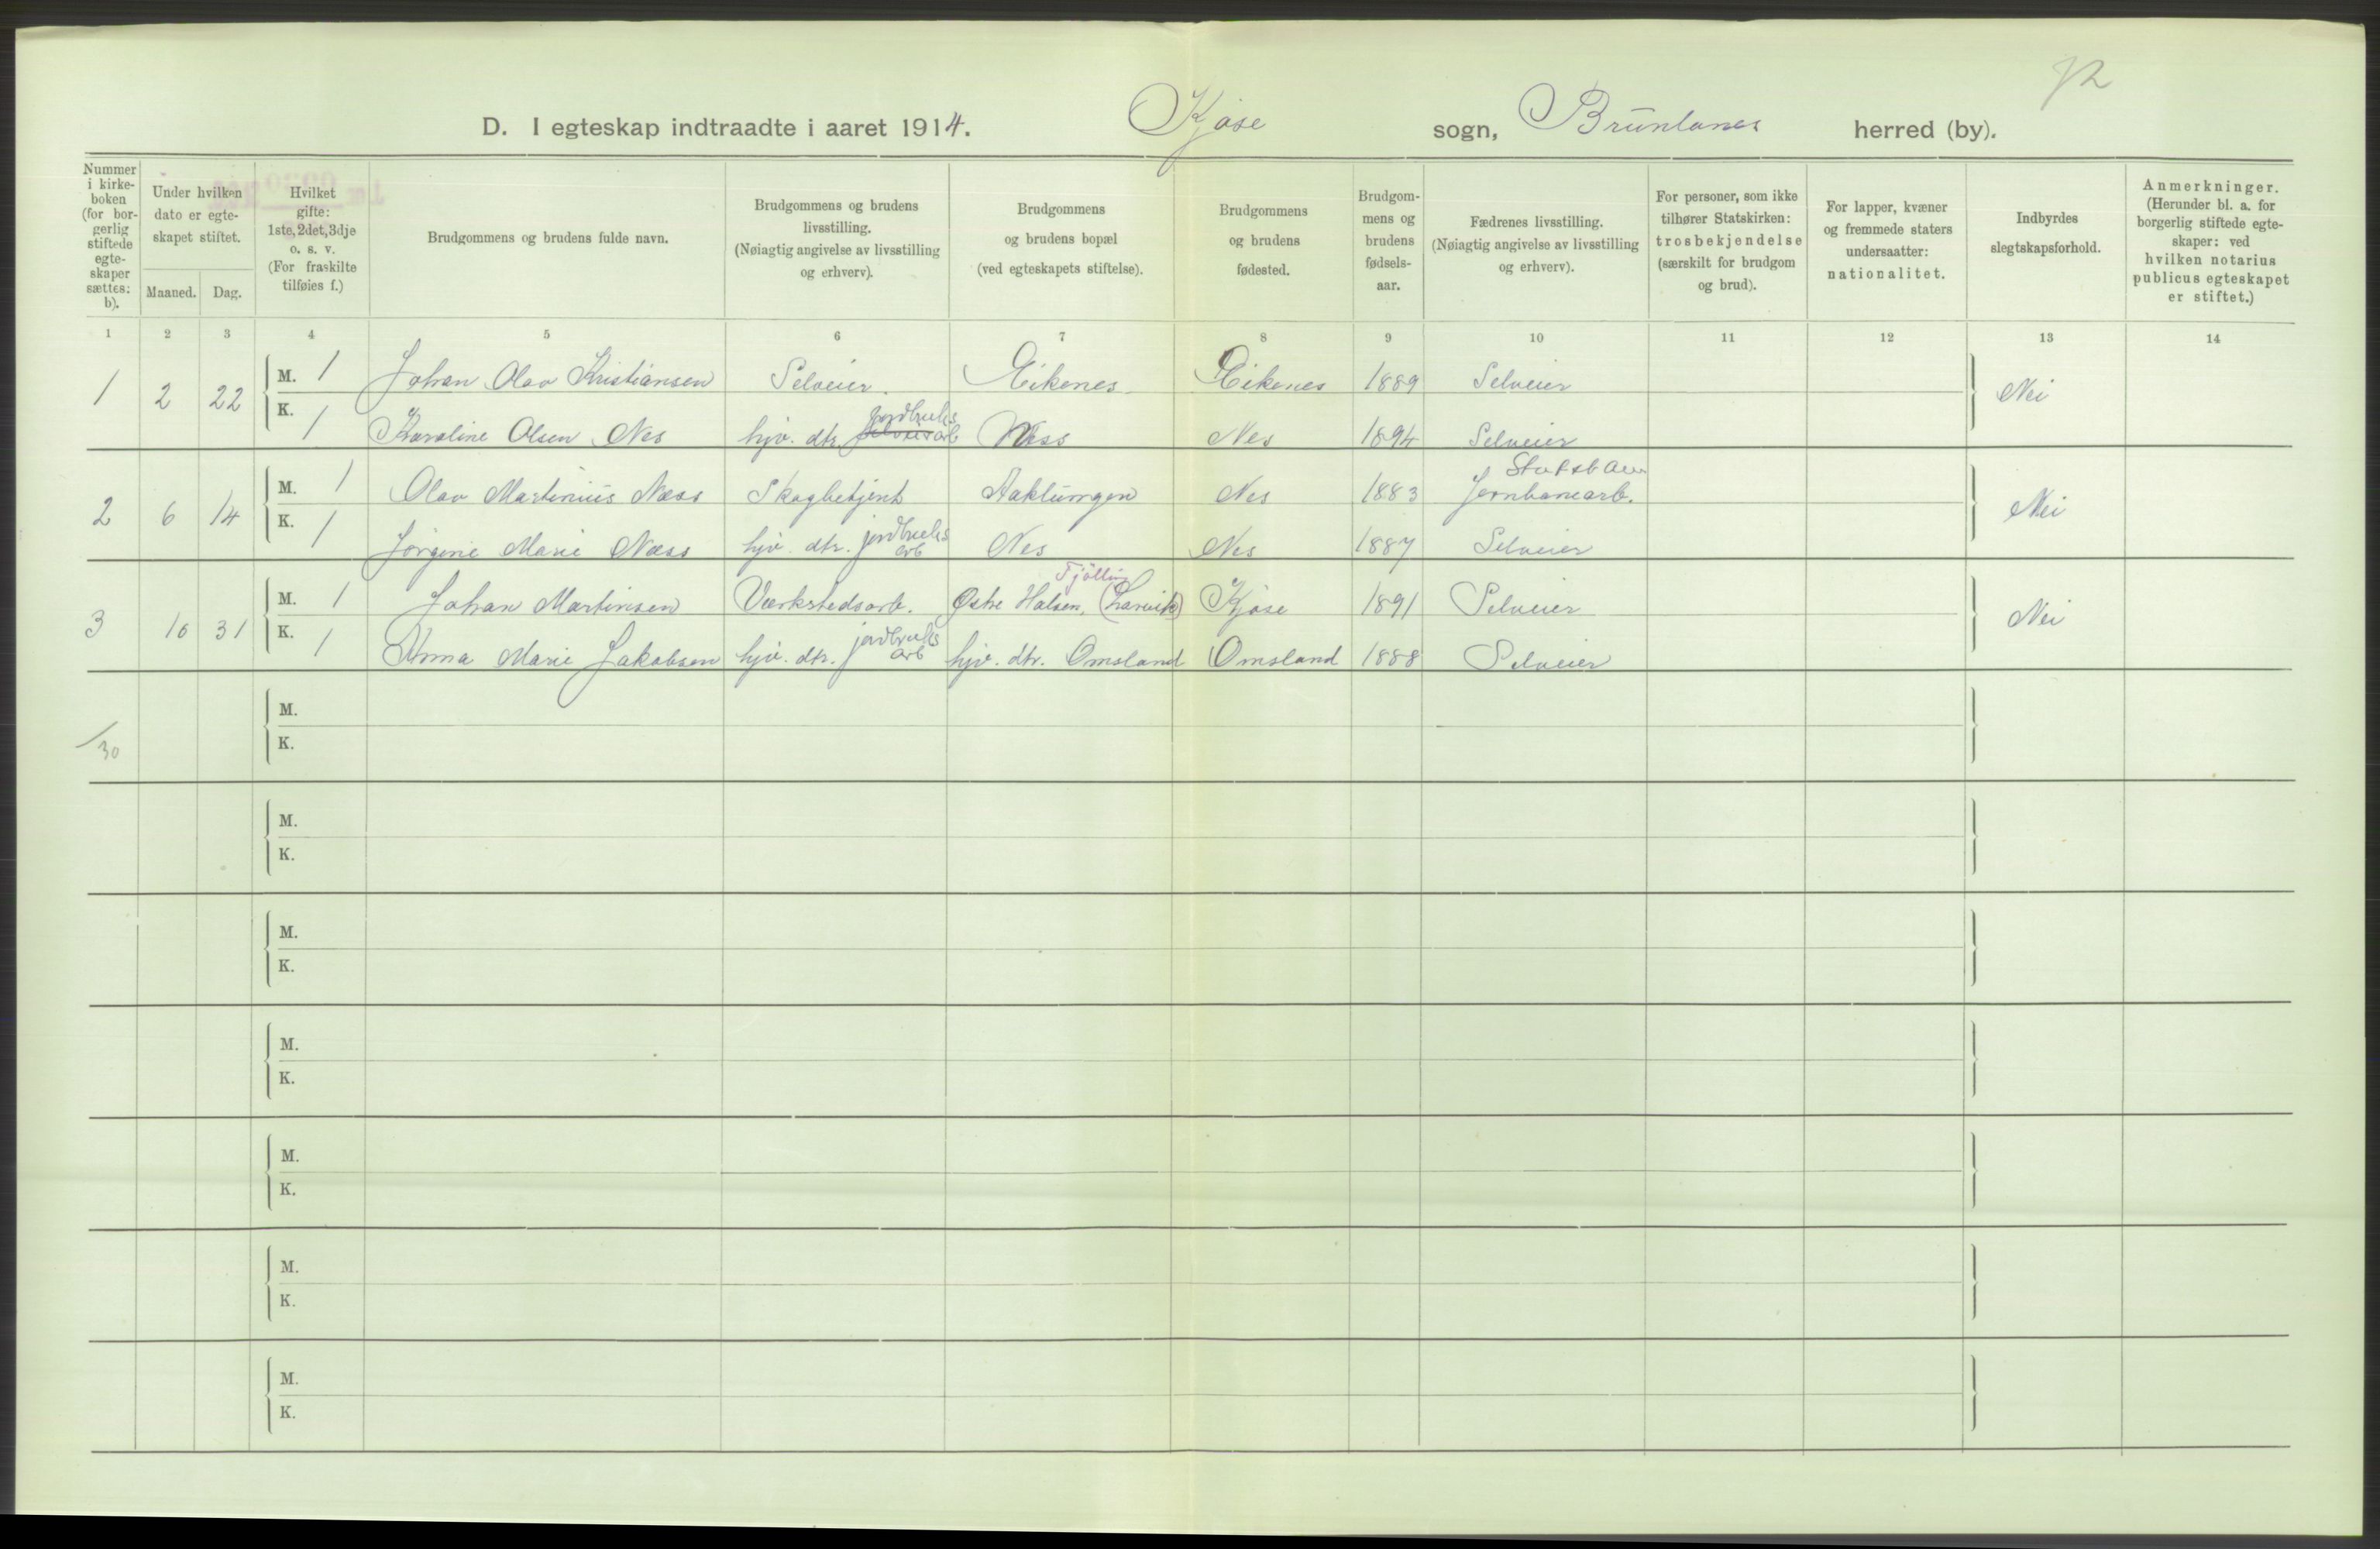 72
D. I egteskap indtraadte i aaret 1914. Kjose sogn, Brunlanes herred (by).
Nummer i kirke-boken (for bor-gerlig stiftede egte-skaper sættes: b).
Under hvilken dato er egte-skapet stiftet.
Maaned. Dag.
Hvilket gifte: 1ste, 2det, 3dje o. s. v. (For fraskilte tilføies f.)
Brudgommens og brudens fulde navn.
Brudgommens og brudens livsstilling. (Nøiagtig angivelse av livsstilling og erhverv).
Brudgommens og brudens bopæl (ved egteskapets stiftelse).
Brudgommens og brudens fødested.
Brudgom-mens og brudens fødsels-aar.
Fædrenes livsstilling. (Nøiagtig angivelse av livsstilling og erhverv).
For personer, som ikke tilhører Statskirken: trosbekjendelse (særskilt for brudgom og brud).
For lapper, kvæner og fremmede staters undersaatter: nationalitet.
Indbyrdes slegtskapsforhold.
Anmerkninger. (Herunder bl. a. for borgerlig stiftede egte-skaper: ved hvilken notarius publicus egteskapet er stiftet.)
1 2 3 4 5 6 7 8 9 10 11 12 13 14
1 2 22 M. 1 Johan Olav Kristiansen Selveier. Eikenes Eikenes 1889 Selveier Nei
K. 1 Karoline Olsen Nes hjv. dtr. jordbruks arb Ness Nes 1894 Selveier
2 6 14 M. 1 Olav Martinius Næss Skogbetjent Aaklungen Nes 1883 Statsban Jernbanearb. Nei
K. 1 Jørgine Marie Næss hjv. dtr. jordbruks arb Nes Nes 1887 Selveier
3 10 31 M. 1 Johan Martinsen Værkstedsarb. Østre Halsen, (Larvik) Tjølling Kjose 1891 Selveier Nei
K. 1 Anna Marie Jakobsen hjv. dtr. jordbruks arb hjv. dtr. Omsland Omsland 1888 Selveier
M.
/30 K.
M.
K.
M.
K.
M.
K.
M.
K.
M.
K.
M.
K.